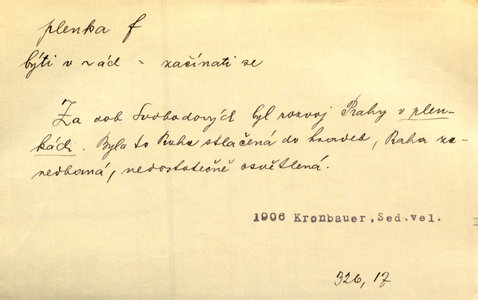 plenka f
býti v -ách = začínati se
Za dob Svobodových byl rozvoj Prahy v plen-
kách. Byla to Praha stlačená do hradeb, Praha za-
nedbaná, nedostatečně osvětlená.
1906 Kronbauer, Sed.vel.
326, 17